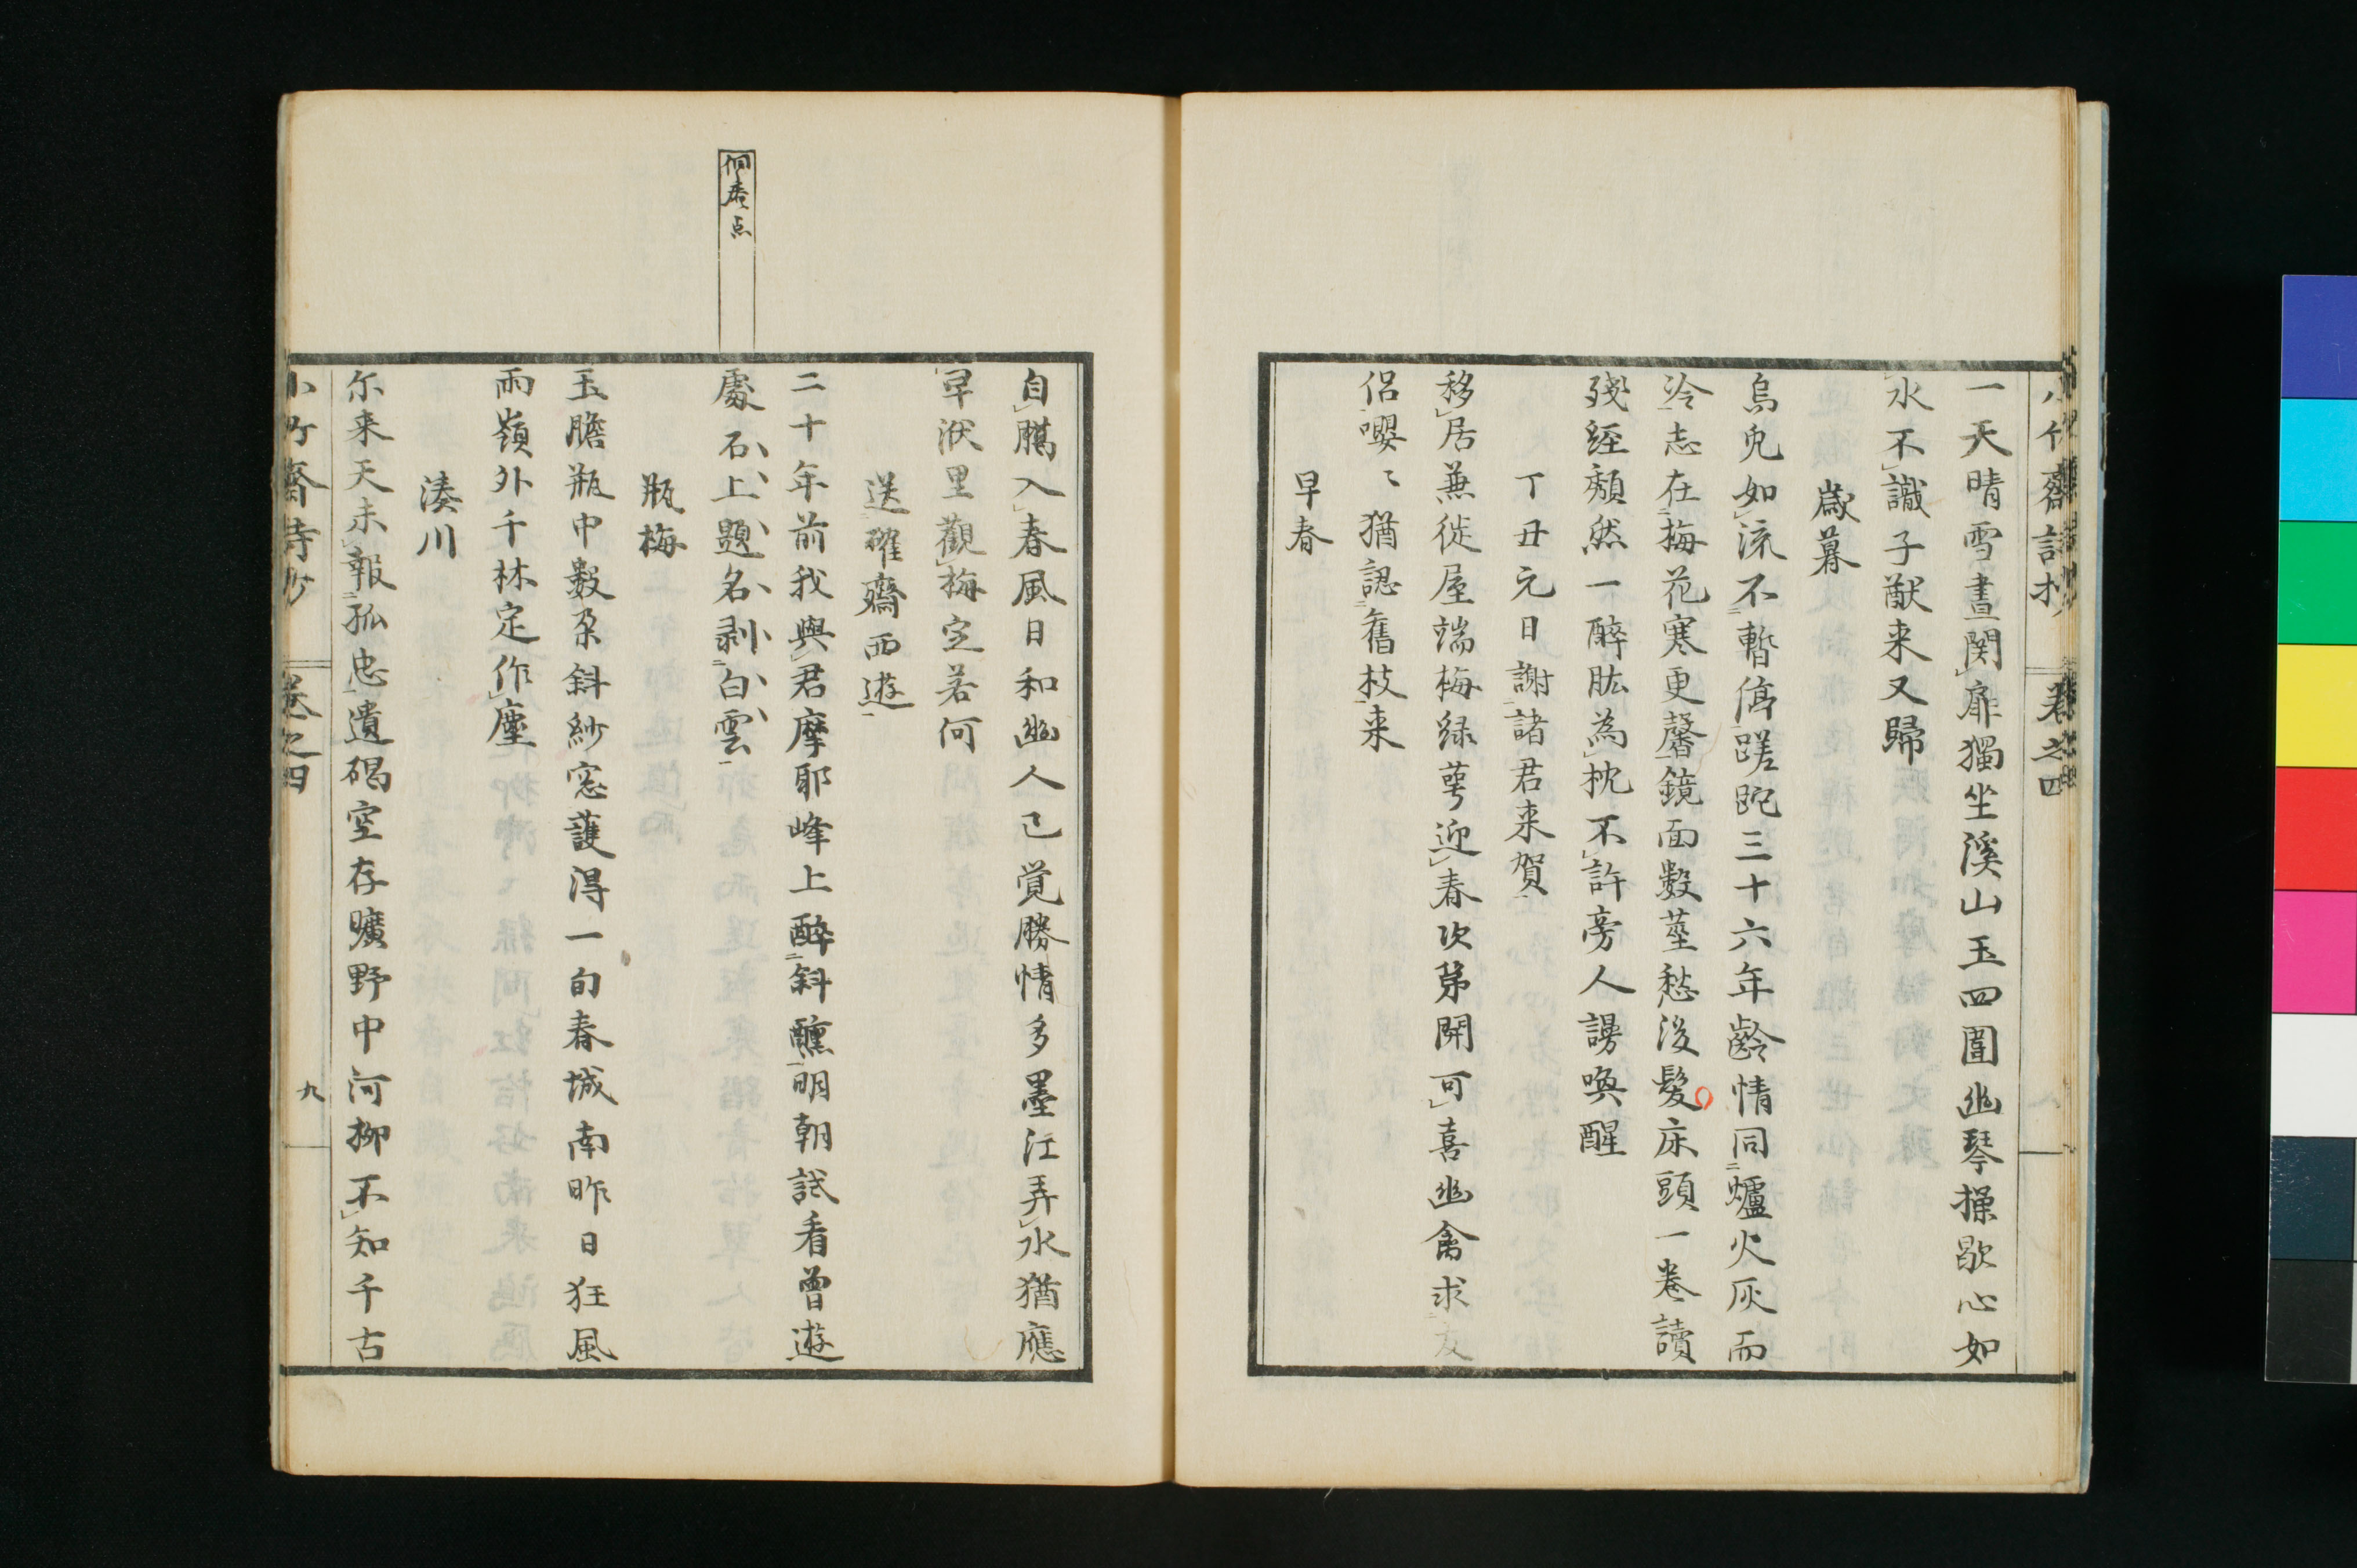 一天晴雪晝関扉獨坐溪山玉四圍幽琴操歇心如
水不識子猷来又歸
歳暮
烏兔如流不暫停蹉跎三十六年齡情同爐火灰而
冷志在梅花寒更馨鏡面數莖愁後髮床頭一巻讀
殘経頽然一醉肱為枕不許旁人謾喚醒
丁丑元日謝諸君来賀
移居兼徙屋端梅緑萼迎春次第開可喜幽禽求友
侶嚶〻猶認舊枝来
早春
自臈入春風日和幽人已覚勝情多墨江弄水猶應
早洑里觀梅定若何
送確齋西遊
二十年前我與君摩耶峰上酔斜醺明朝試看曾遊
處石上題名剥白雲
侗庵点
瓶梅
玉膽瓶中数朶斜紗窓護得一旬春城南昨日狂風
雨嶺外千林定作塵
湊川
尓来天未報孤忠遺碣空存曠野中河柳不知千古
小竹齋詩抄
巻之四
九